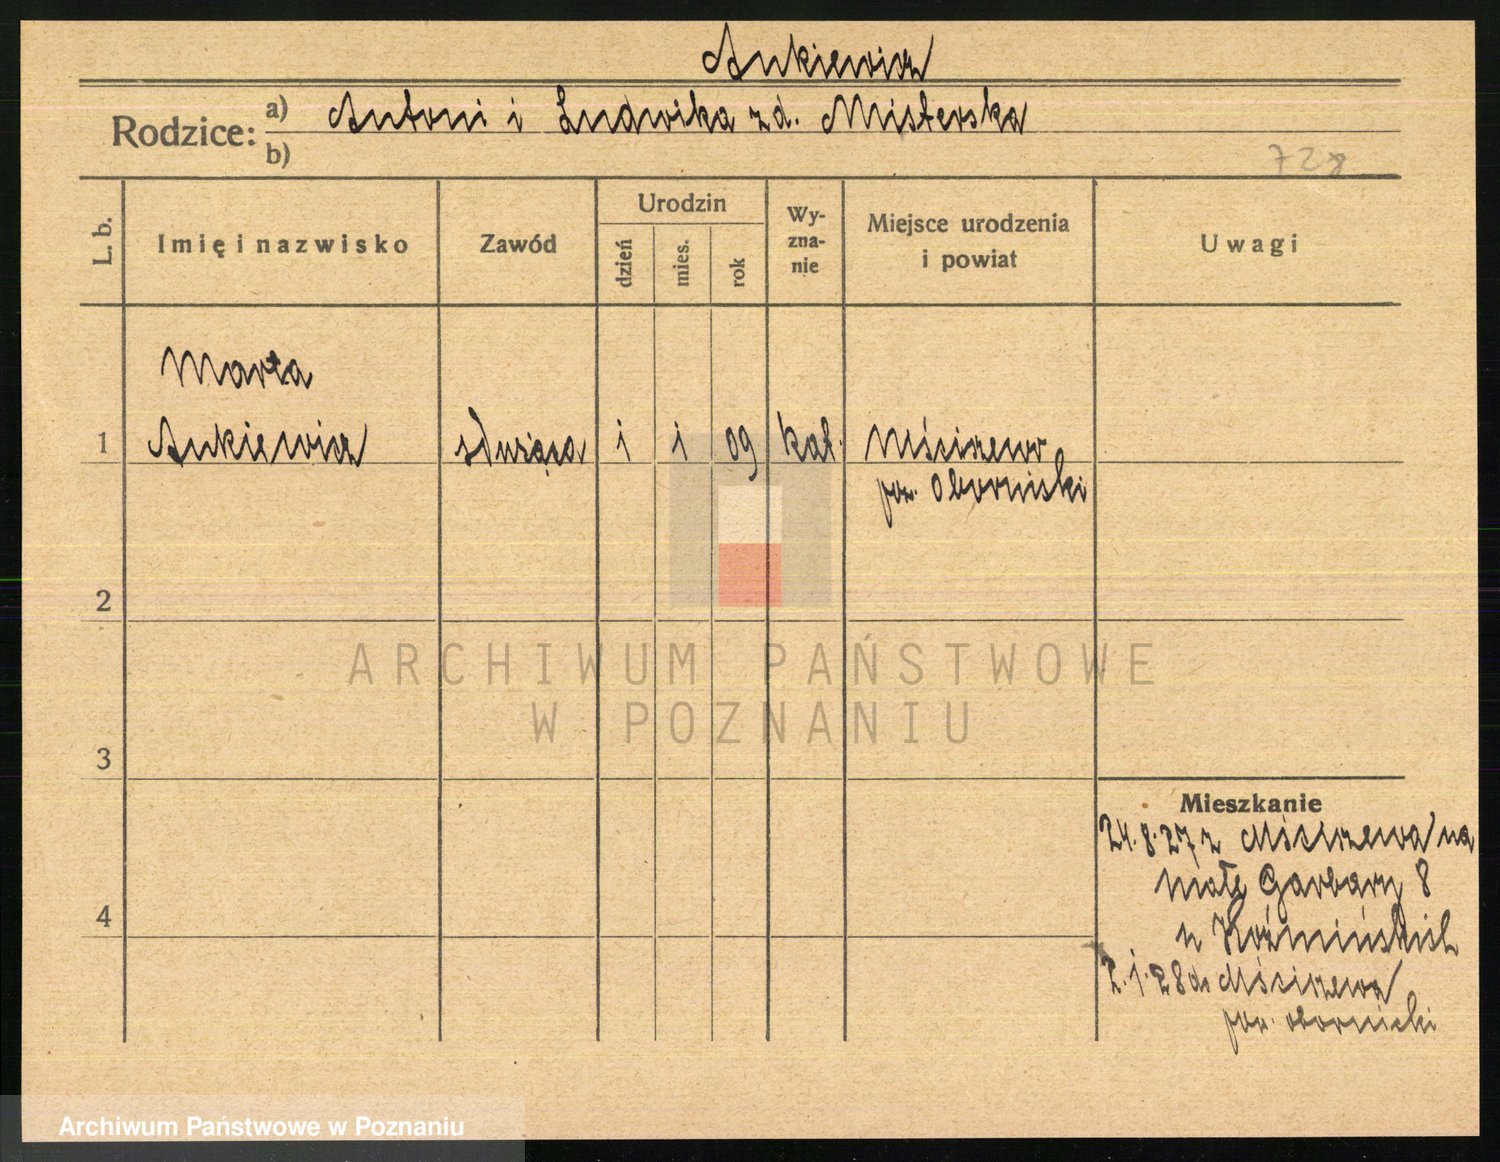 Ankiewicz
Rodzice: a) Antoni i Ludwika zd. Misterska
b)
728
L. b.
Imię i nazwisko
Zawód
Urodzin
dzień
mies.
rok
Wy-
zna-
nie
Miejsce urodzenia
i powiat
Uwagi
Marta
1 Ankiewicz służąca 1 1 09 kat. Mściszewo
pow. Obornicki
2
ARCHIWUM PAŃSTWOWE
W POZNANIU
3
Mieszkanie
24.8.27 z Mściszewa na
Małe Garbary 8
4
u Koźmińskich
2.1.28 do Mściszewa
pow. obornicki
Archiwum Państwowe w Poznaniu